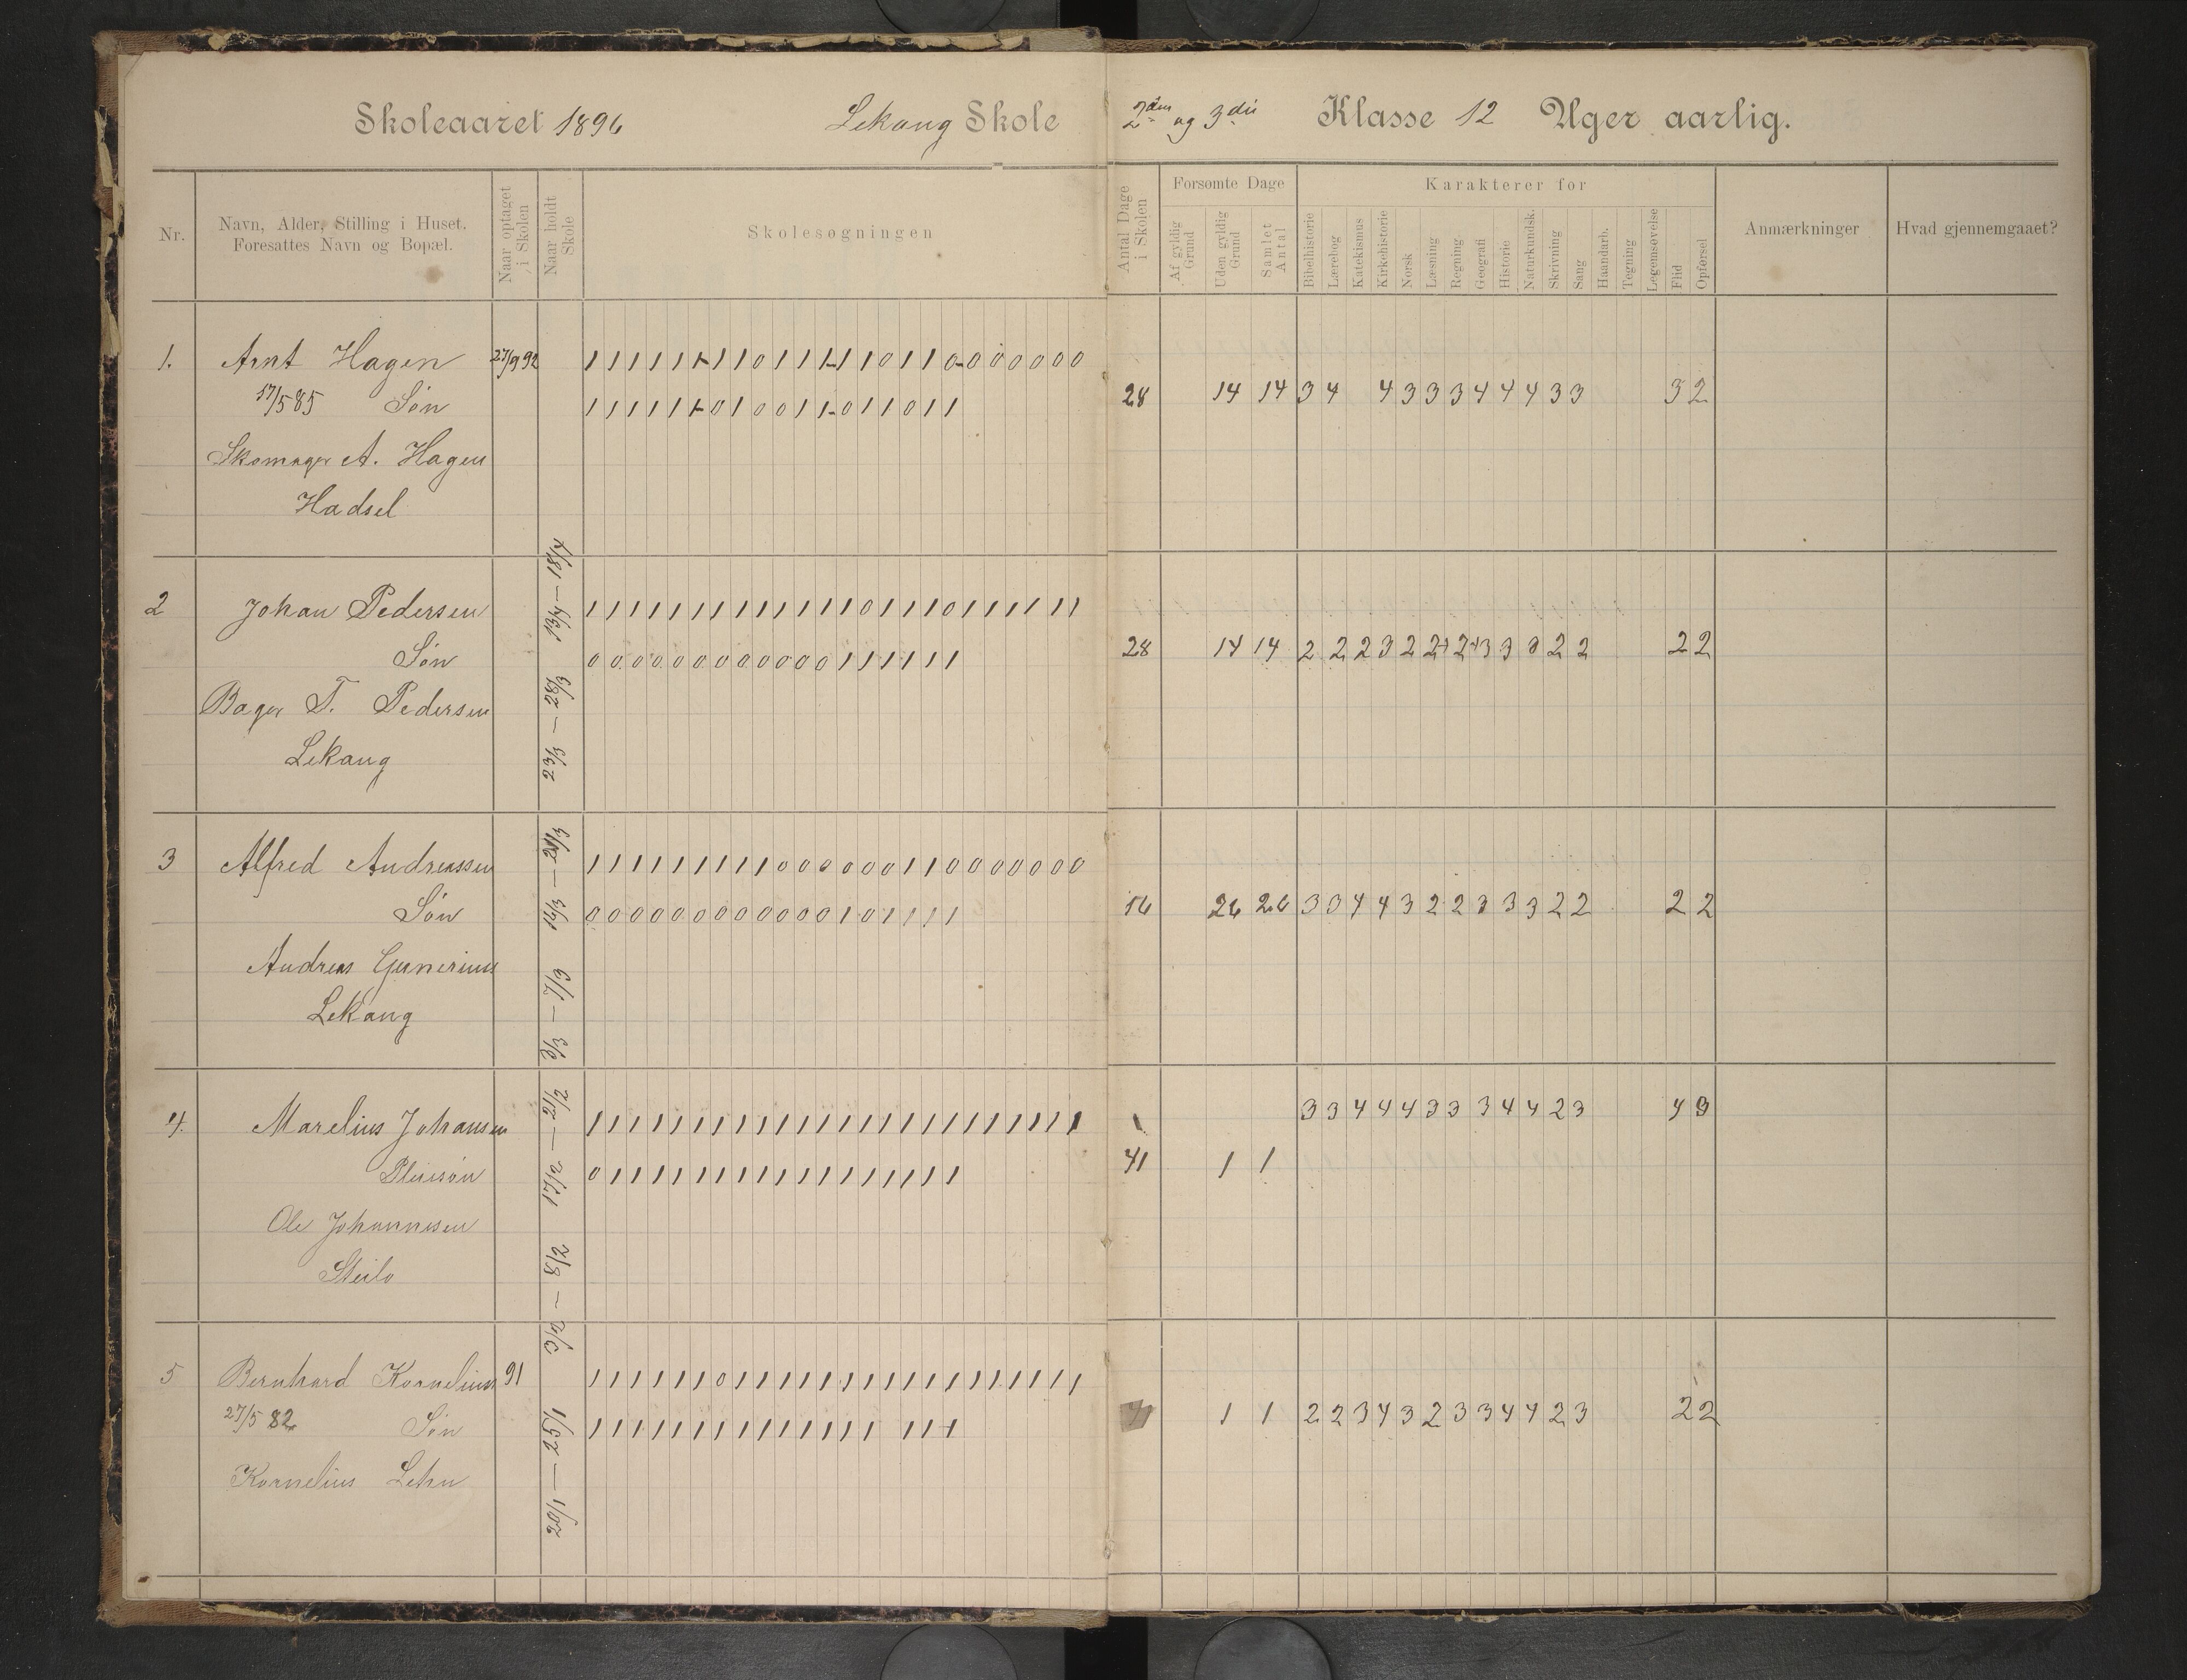 Skoleaaret 1896 Lekang Skole 2den og 3die Klasse 12 Uger aarlig.
Nr. Navn, Alder, Stilling i Huset. Foresattes Navn og Bopæl. Naar optaget i Skolen Naar holdt Skole Skolesøgningen Antal Dage i Skolen Forsømte Dage Af gyldig Grund Uden gyldig Grund Samlet Antal Karakterer for Bibelhistorie Lærebog Katekismus Kirkehistorie Norsk Læsning Regning Geografi Historie Naturkundsk. Skrivning Sang Haandarb. Tegning Legemsøvelse Flid Opførsel Anmærkninger Hvad gjennemgaaet?
1. Arnt Hagen 27/9 92
17/5 85 Søn 28 14 14 3 4 4 3 3 3 4 4 4 3 3 3 2
Skomager A. Hagen
Hadsel
2 Johan Pedersen 1 1 1 1 1 1 1 1 1 1 1 1 1 0 1 1 1 0 1 1 1 1 1 1
Søn 0 0 0 0 0 0 0 0 0 0 0 0 1 1 1 1 1 1 28 14 14 2 2 2 3 2 2+ 2+ 3 3 3 2 2 2 2
Bager T. Pedersen
Lekang
3 Alfred Andreassen 1 1 1 1 1 1 1 1 1 0 0 0 0 0 0 1 1 0 0 0 0 0 0 0
Søn 0 0 0 0 0 0 0 0 0 0 0 0 1 0 1 1 1 1 16 26 26 3 3 4 4 3 2 2 3 3 3 2 2 2 2
Andreas Gunerius
Lekang
4. Marelius Johansen 1 1 1 1 1 1 1 1 1 1 1 1 1 1 1 1 1 1 1 1 1 1 1 1 3 3 4 4 4 3 3 3 4 4 2 3 4 3
Pleiesøn 0 1 1 1 1 1 1 1 1 1 1 1 1 1 1 1 1 1 41 1 1
Ole Johannesen
Steilo
5 Bernhard Kornelius 91 1 1 1 1 1 1 0 1 1 1 1 1 1 1 1 1 1 1 1 1 1 1 1 1
27/5 82 Søn 1 1 2 2 3 4 3 2 3 3 4 4 2 3 2 2
Kornelius Lehn
13/4 — 18/4
23/3 — 28/3
16/3 — 21/3
2/3 — 7/3
10/2 — 15/2
3/2 — 8/2
20/1 — 25/1